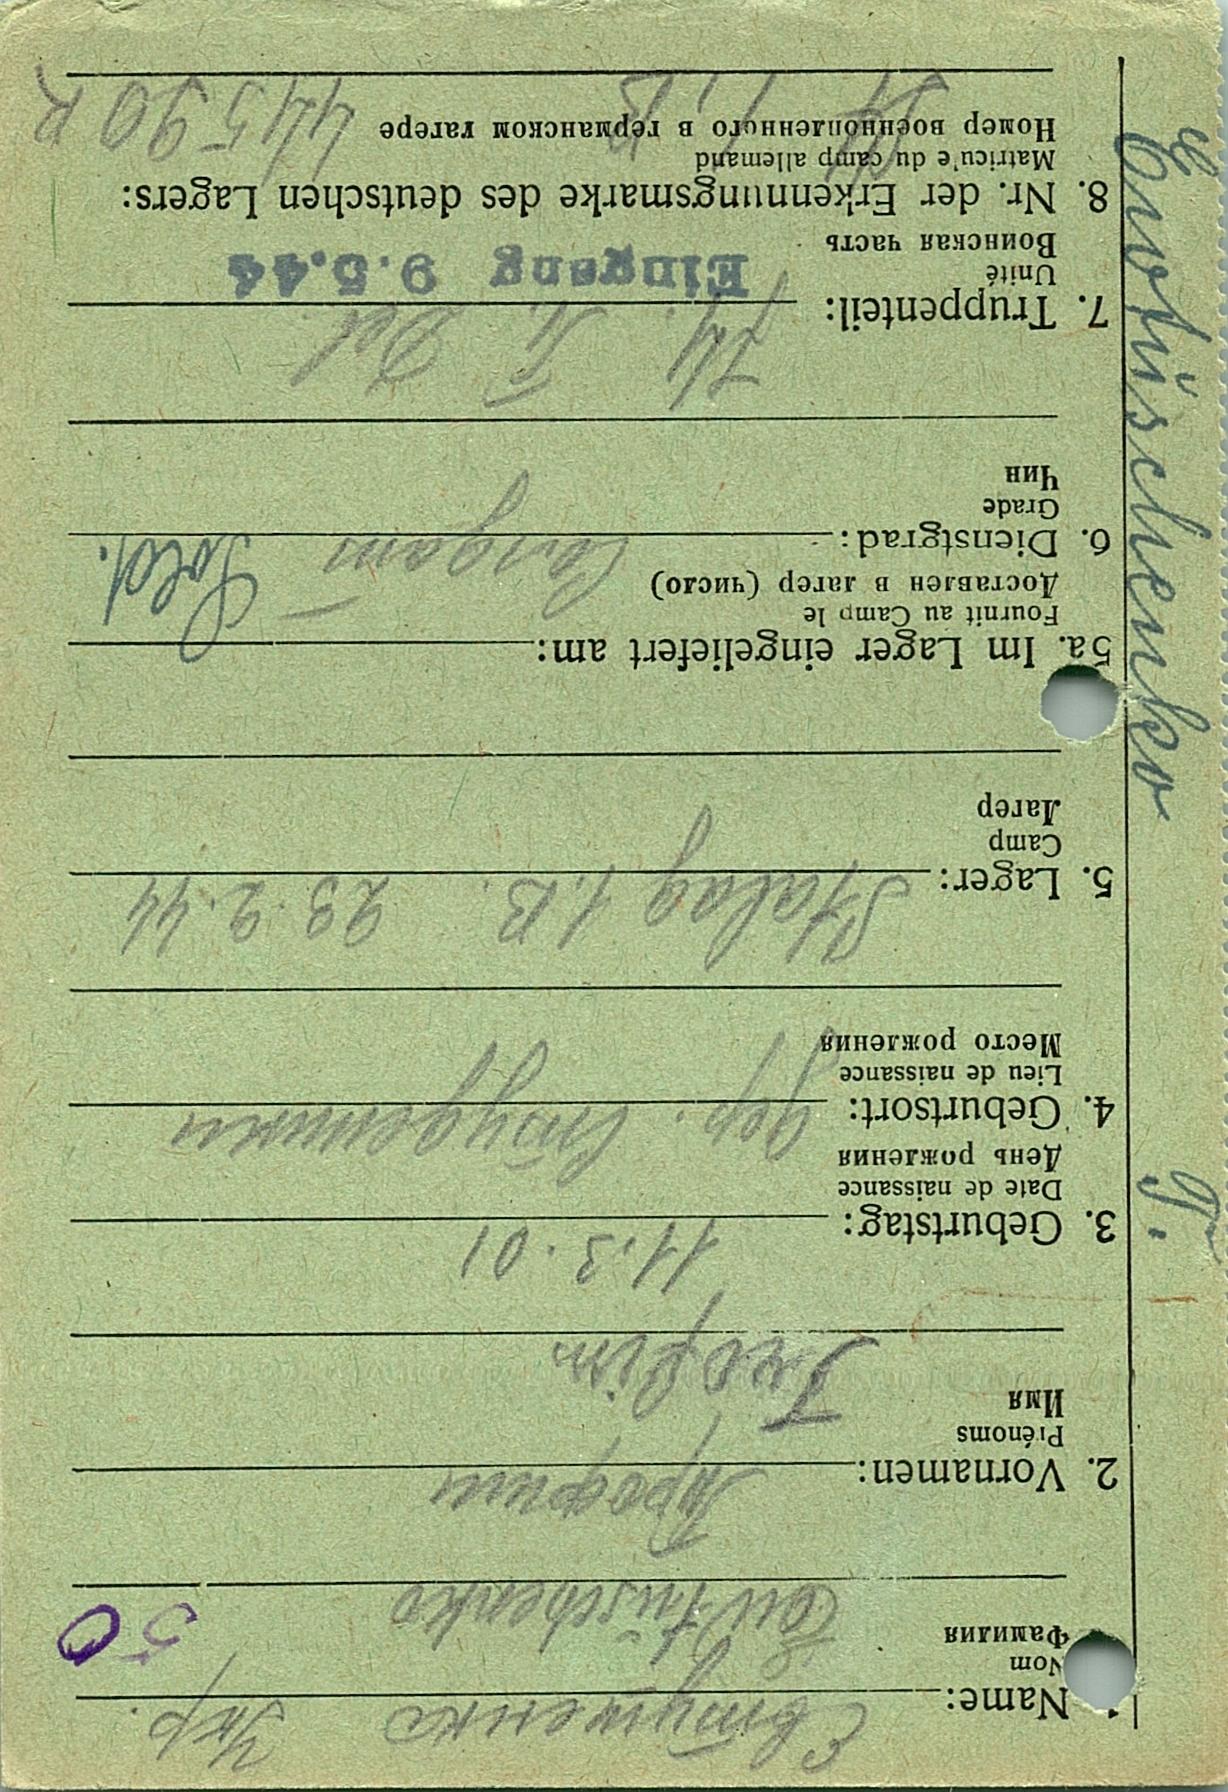 1. Name: Евтушенко Укр.
Nom
Фамилия
Ewtüschenko
50
2. Vornamen: Трофим
Prénoms
Имя
Trofim
3. Geburtstag: 11.3.01
Date de naissance
День рождения
4. Geburtsort: дер.
Lieu de naissance
Место рождения
5. Lager: Stalag 1.B. 23.2.44
Camp
Лагер
5a. Im Lager eingeliefert am:
Fournit au Camp le
Доставлен в лагер (число)
6. Dienstgrad: Sold.
Grade
Чин
7. Truppenteil:
Unité
Воинская часть
Eingang 9.5.44
8. Nr. der Erkennungsmarke des deutschen Lagers:
Matricu'e du camp allemand
Номер военнопленного в германском лагере
1,B 44590
Ewtüschenko
T.